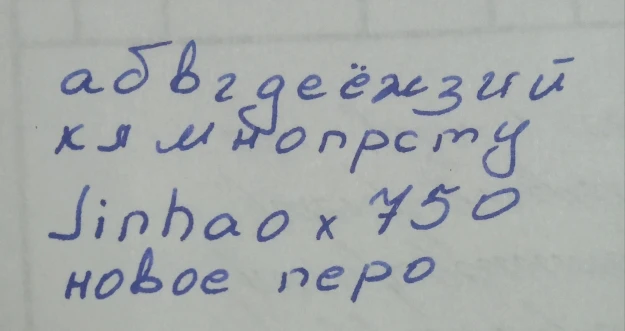 абвгдеёжзий
клмнопрсту
Jinhao x 750
новое перо